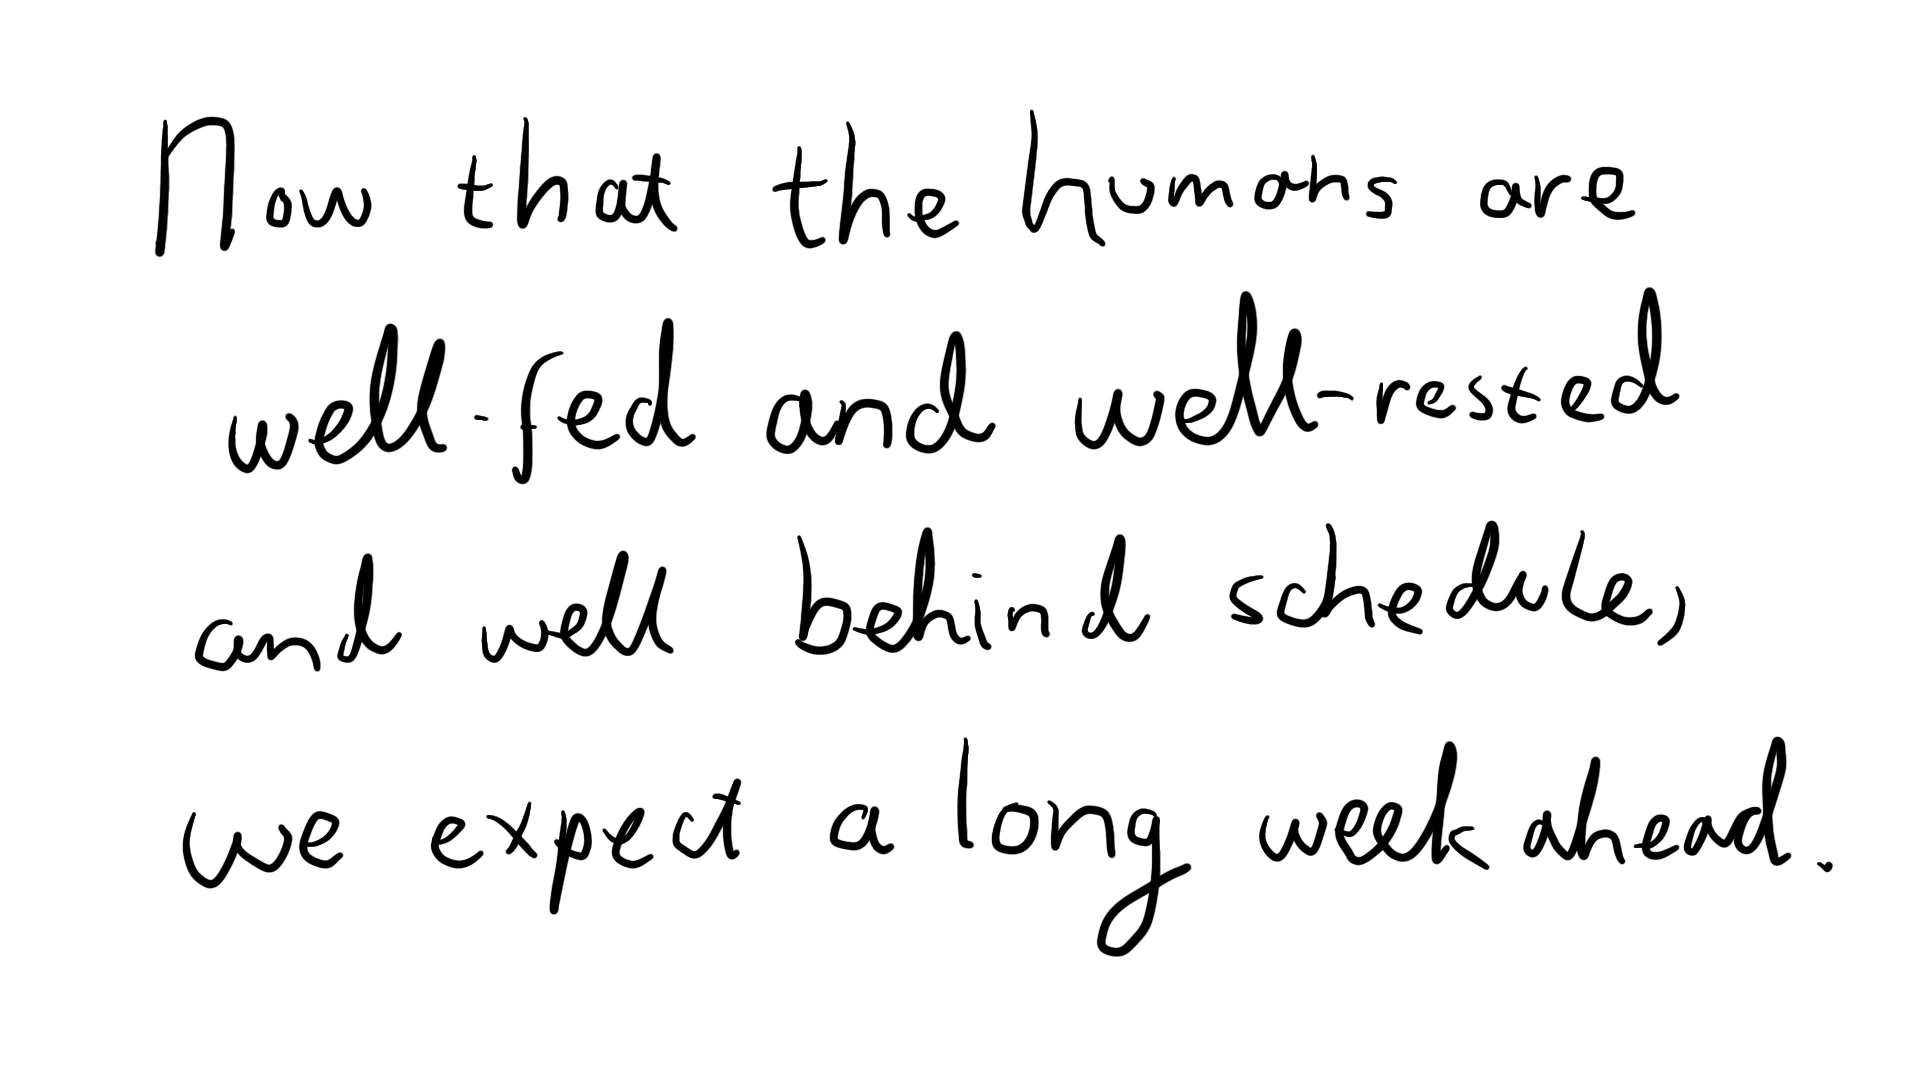 Now that the humans are
well-fed and well-rested
and well behind schedule,
we expect a long week ahead.